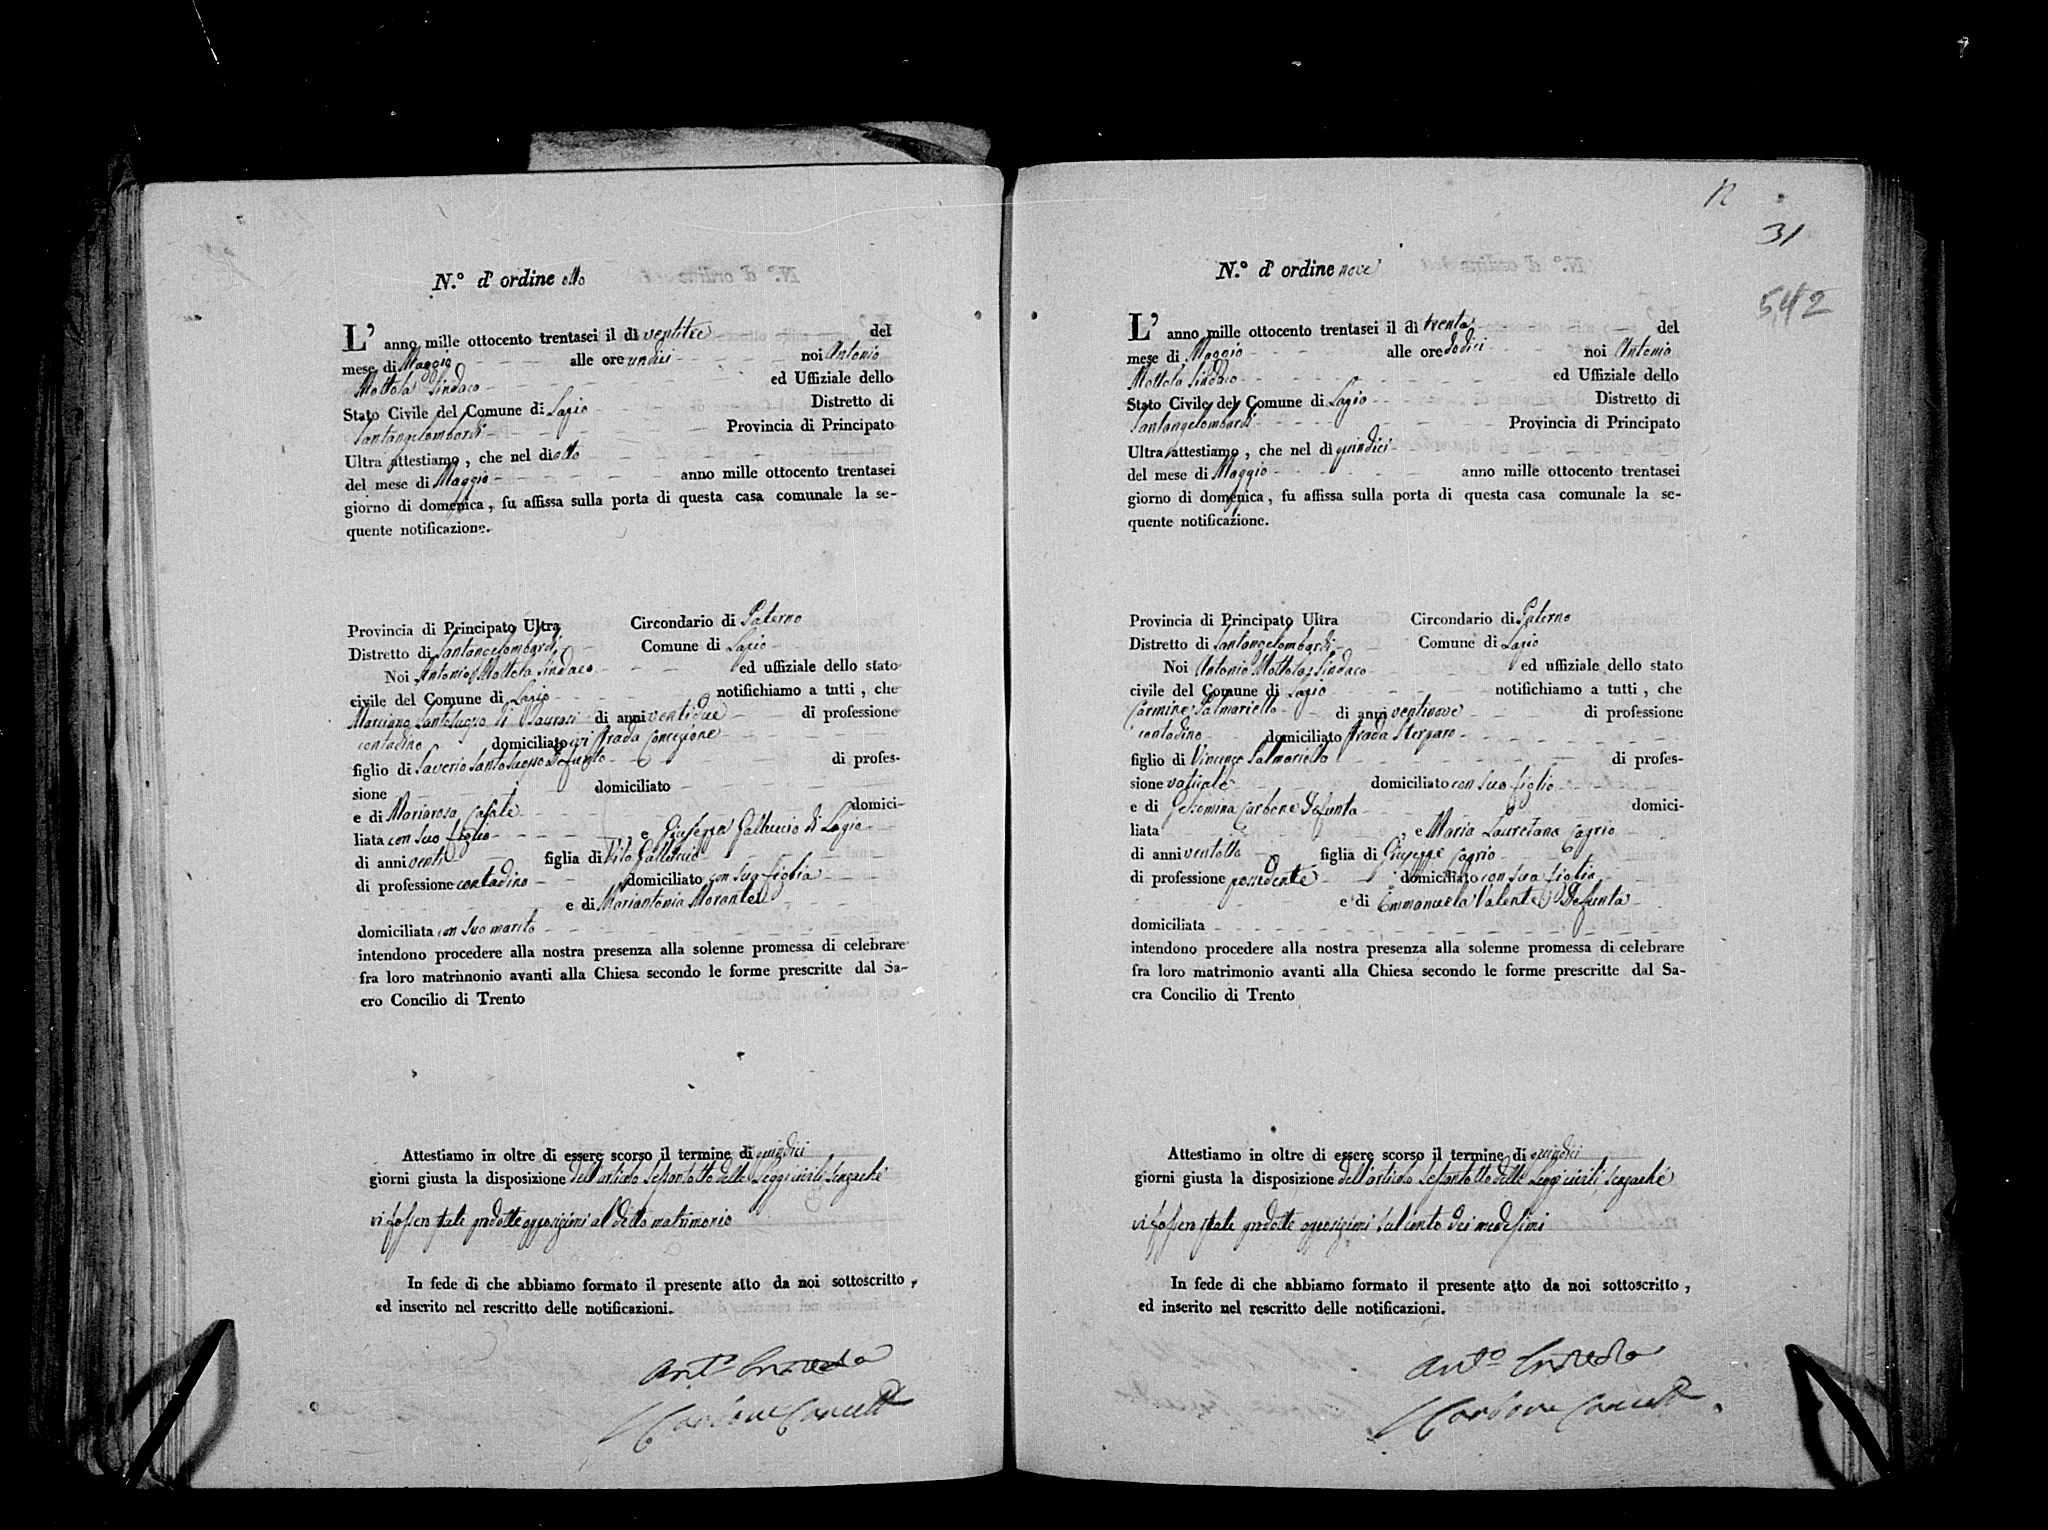 N.° d' ordine otto
L' anno mille ottocento trentasei il dì ventitre del
mese di Maggio alle ore undici noi Antonio
Mottola Sindaco ed Uffiziale dello
Stato Civile del Comune di Lapio Distretto di
Santangelombardi Provincia di Principato
Ultra attestiamo, che nel di otto
del mese di Maggio anno mille ottocento trentasei
giorno di domenica, fu affissa sulla porta di questa casa comunale la se-
quente notificazione.
Provincia di Principato Ultra Circondario di Paterno
Distretto di Santangelombardi Comune di Lapio
Noi Antonio Mottola Sindaco ed uffiziale dello stato
civile del Comune di Lapio notifichiamo a tutti, che
Marciano Santosuosso di Taurasi di anni ventidue di professione
contadino domiciliato ivi Strada Concezione
figlio di Saverio Santosuosso Defunto di profes-
sione domiciliato
e di Mariarosa Casale domici-
liata con suo figlio, e Giuseppa Galluccio di Lapio
di anni venti figlia di Vito Galluccio
di professione contadino domiciliato con sua figlia
e di Mariantonia Morante
domiciliata con suo marito
intendono procedere alla nostra presenza alla solenne promessa di celebrare
fra loro matrimonio avanti alla Chiesa secondo le forme prescritte dal Sa-
cro Concilio di Trento
Attestiamo in oltre di essere scorso il termine di quindici
giorni giusta la disposizione dell'articolo sessantotto delle Leggi civili senzache
vi fossero state prodotte opposizioni al detto matrimonio
In fede di che abbiamo formato il presente atto da noi sottoscritto,
ed inserito nel rescritto delle notificazioni.
Ant.°
Cardone
12
31
542
N.° d' ordine nove
L' anno mille ottocento trentasei il dì trenta del
mese di Maggio alle ore dodici noi Antonio
Mottola Sindaco ed Uffiziale dello
Stato Civile del Comune di Lapio Distretto di
Santangelombardi Provincia di Principato
Ultra attestiamo, che nel dì quindici
del mese di Maggio anno mille ottocento trentasei
giorno di domenica, fu affissa sulla porta di questa casa comunale la se-
quente notificazione.
Provincia di Principato Ultra Circondario di Paterno
Distretto di Santangelombardi Comune di Lapio
Noi Antonio Mottola Sindaco ed uffiziale dello stato
civile del Comune di Lapio notifichiamo a tutti, che
Carmine Palmariello di anni ventinove di professione
contadino domiciliato Strada
figlio di Vincenzo Palmariello di profes-
sione vaticale domiciliato con suo figlio
e di Gelsomina Carbone Defunta domici-
liata, e Maria Lauretana Caprio
di anni ventotto figlia di Giuseppe Caprio
di professione possidente domiciliato con sua figlia
e di Emmanuela Valente Defunta
domiciliata
intendono procedere alla nostra presenza alla solenne promessa di celebrare
fra loro matrimonio avanti alla Chiesa secondo le forme prescritte dal Sa-
cra Concilio di Trento
Attestiamo in oltre di essere scorso il termine di quindici
giorni giusta la disposizione dell'articolo sessantotto delle Leggi civili senzache
vi fossero state prodotte opposizioni sul conto dei medesimi
In fede di che abbiamo formato il presente atto da noi sottoscritto,
ed inserito nel rescritto delle notificazioni.
Ant.°
Cardone